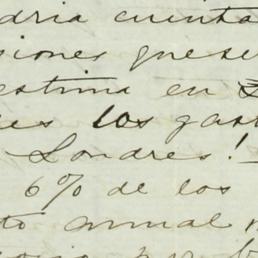 dria cuenta
siones que se
estima en
es los gast
Londres!
6% de los
to annual